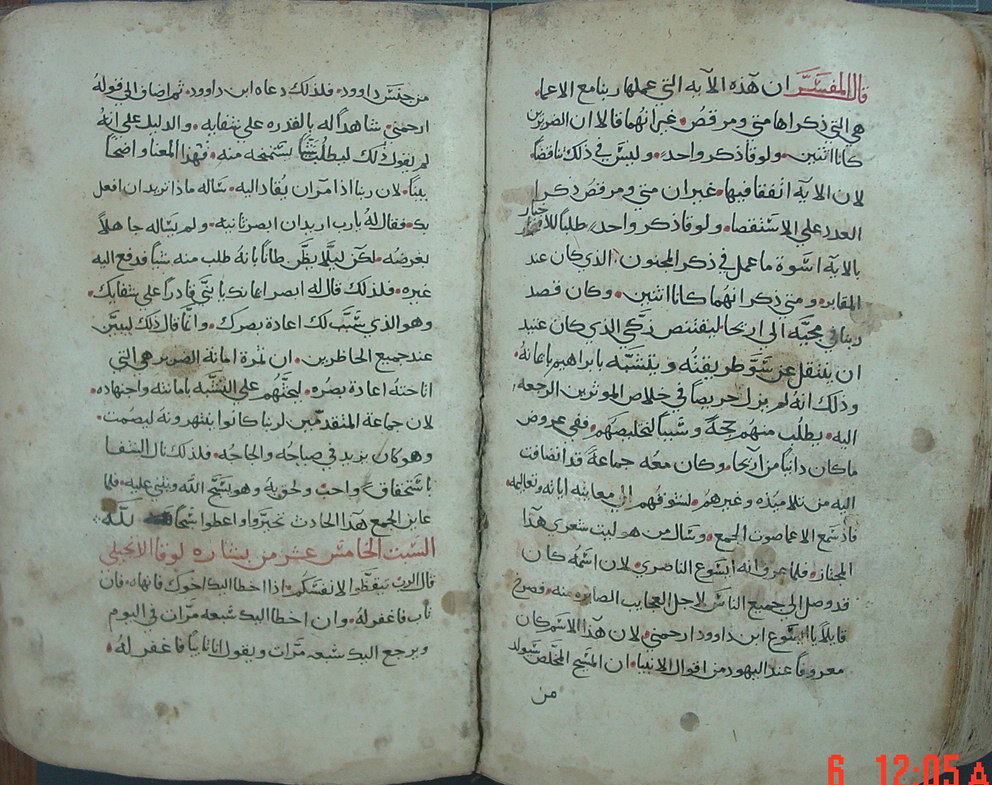 قال المفسر ان هذه الآيه التي عملها ربنا مع الاعما
هي التي ذكراها متي ومرقص غير انهما قالا ان الضريرين
كانا اثنين ولوقا ذكر واحد وليس في ذلك تناقضا
لان الايه اتفقا فيها غير ان متي ومرقص ذكرا
العدد علي الاستقصا ولوقا ذكر واحد طلبا للاختبار
بالايه اسوة ما عمل في ذكر المجنون الذي كان عند
المقابر ومتي ذكر انهما كانا اثنين وكان قصد
ربنا في مجيه الي اريحا ليقتنص زكي الذي كان عتيد
ان ينتقل عن سو طريقته ويتشبه بابراهيم بامانه
وذلك انه لم يزل حريصا في خلاص الموثرين الرجعه
اليه يطلب منهم حجة وسببا لتخليصهم ففي عروض
ما كان دانيا من اريحا وكان معه جماعة قد انضافت
اليه من تلاميذه وغيرهم لتشوقهم الي معاينة اياته وتعاليمه
فاذ سمع الاعما صوت الجمع وسال من هو ليت شعري هذا
المجتاز فلما عرفوا انه ايسوع الناصري لان اسمه كان
قد وصل الي جميع الناس لاجل العجايب الصايره منه فصرخ
قايلا يا ايسوع ابن داوود ارحمني لان هذا الاسم كان
معروفا عند اليهود من اقوال الانبيا ان المسيح المخلص سيولد
من
من جنس داوود فلذلك دعاه ابن داوود ثم اضاف الي قوله
ارحمني شاهدا له بالقدره علي شفايه والدليل علي انه
لم يقول ذلك ليطلب شيا يستمنحه منه فهذا المعنا واضحا
بينا لان ربنا اذ امر ان يقاد اليه ساله ماذا تريد ان افعل
بك فقال له يارب اريد ان ابصر ثانية ولم يساله جاهلا
بغرضه لكن ليلا يظن ظانا بانه طلب منه شيا فدفع اليه
غيره فلذلك قال له ابصر ايمانك باني قادرا علي شفايك
وهو الذي سبب لك اعادة بصرك وانما قال ذلك ليبين
عند جميع الحاظرين ان ثمرة امانة الضرير هي التي
اتاحته اعادة بصره ليحثهم علي التشبه بامانته واجتهاده
لان جماعة المتقدمين لربنا كانوا ينتهرونه ليصمت
وهو كان يزيد في صياحه والحاحه فلذلك نال الشفا
باستحقاق واجب ولحق به وهو يسبح الله ويثني عليه فلما
عاين الجمع هذا الحادث تحيروا واعطوا سبحا لله
السبت الخامس عشر من بشارة لوقا الانجيلي
قال الرب تيقظوا لانفسكم اذا اخطا اليك اخوك فانهاه فان
تاب فاغفر له وان اخطا اليك سبعه مرات في اليوم
ويرجع اليك سبعه مرات ويقول انا تايبا فاغفر له
6 12:05